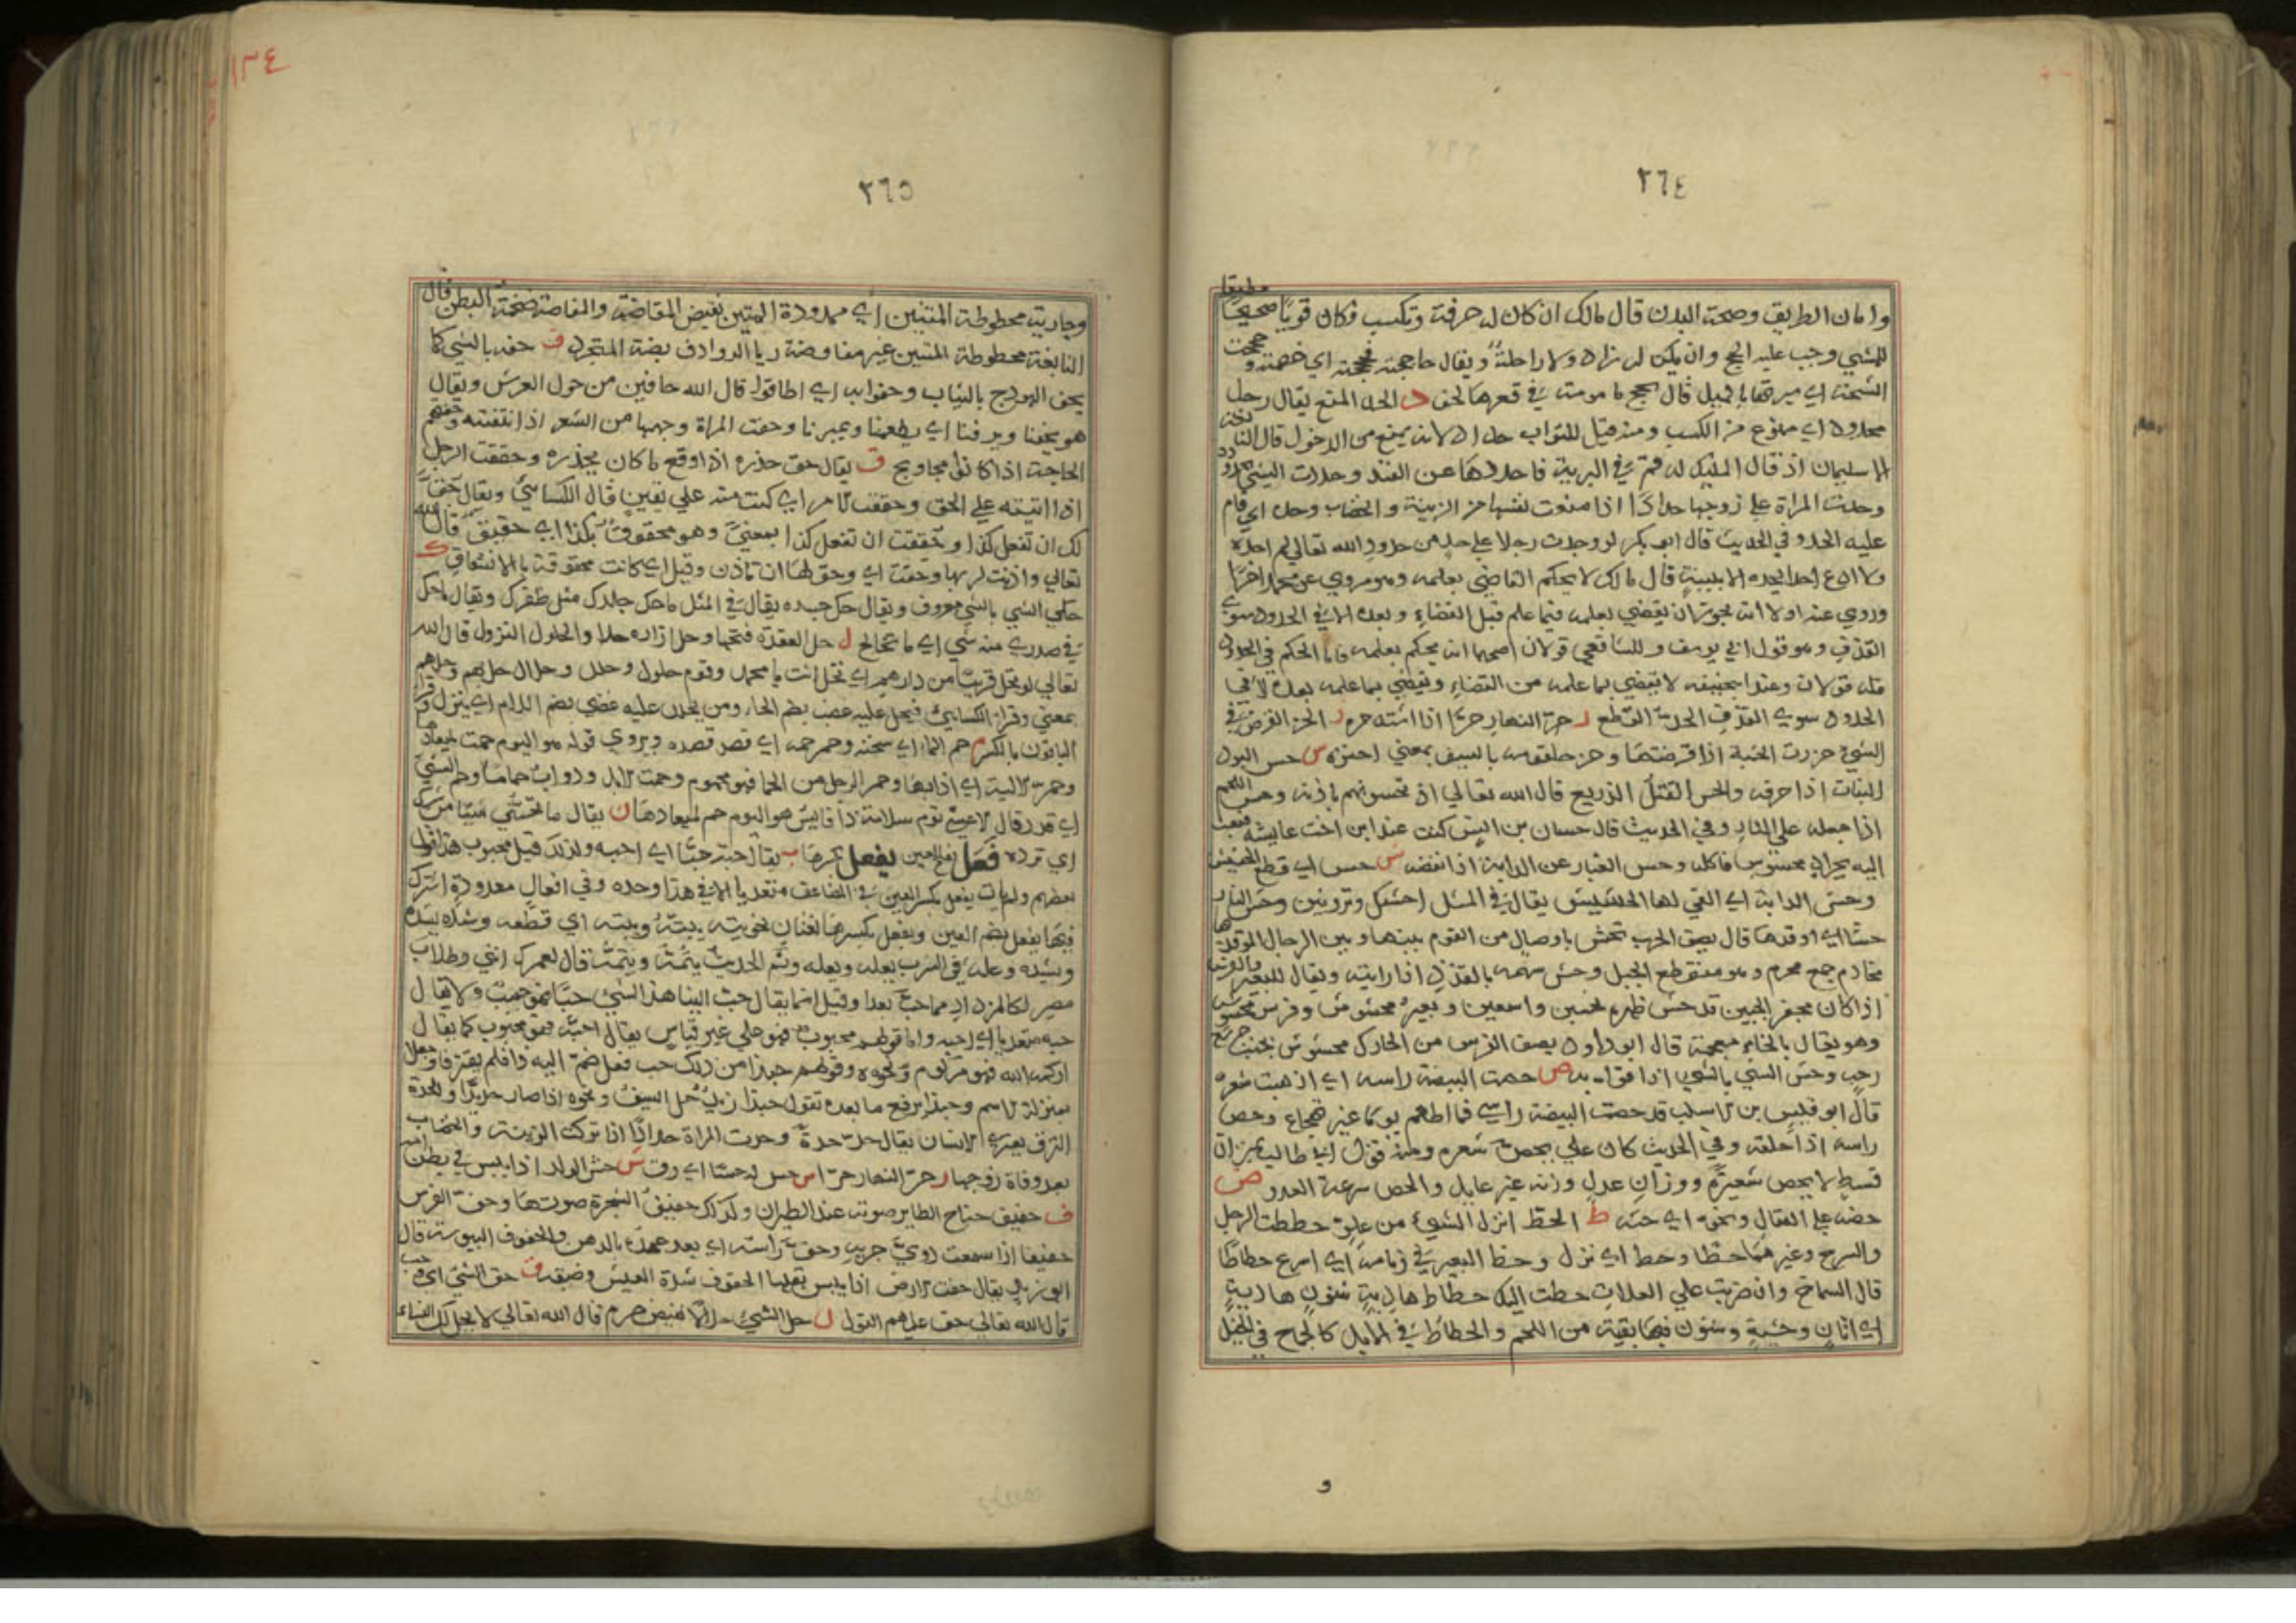 ٢٦٤
وامان الطريق وصحة البدن قال مالك ان كان له حرفة وتكسب وكان قويا صحيحا مطيقا
للمشي وجب عليه الحج وان لم يكن له زاد ولا راحلة ويقال حاججته فحججته اي خصمته وحججت
الشجة اي سبرتها بالميل قال يحج مامومة في قعرها لجف د الحد المنع يقال رجل
محدود اي ممنوع من الكسب ومنه قيل للبواب حداد لانه يمنع من الدخول قال النابغة
الا سليمان اذ قال المليك له قم في البرية فاحددها عن الفند وحددت الشي
وحدت المراة على زوجها حدادا اذا منعت نفسها من الزينة والخضاب وحده اي اقام
عليه الحد وفي الحديث قال ابو بكر لو وجدت رجلا على حد من حدود الله تعالى لم احده
ولا ادع احدا يحده الا ببينة قال مالك لا يحكم القاضي بعلمه وهو مروي عن محمد اخرا
وروي عنه اولا انه يجوز ان يقضي بعلمه فيما علم قبل القضاء وبعده الا في الحدود سوى
القذف وهو قول ابي يوسف وللشافعي قولان اصحهما انه يحكم بعلمه فاما الحكم في الحدود
فله قولان وعند ابي حنيفة لا يقضي بما علمه من القضاء ويقضي بما علمه بعده الا في
الحدود سوى القذف الحد القطع ر حر النهار حرا اذا اشتد حره ز الحز الفرض في
الشيء حززت الخشبة اذا فرضتها وحز حلقومه بالسيف بمعنى احتزه س حس البرد
النبات اذا حرقه والحس القتل الذريع قال الله تعالى اذ تحسونهم باذنه وحس اللحم
اذا جعله على النار وفي الحديث قال حسان بن انس كنت عند ابن اخت عايشة فبعثت
اليه بجراد محسوس فاكله وحس الغبار عن الدابة اذا نفضه ش حش اي قطع الحشيش
وحش الدابة اي القى لها الحشيش يقال في المثل احشك وتروثين وحش النار
حشا اي اوقدها قال يصف الحرب تحش باوصال من القوم بينها وبين الرجال الموقديها
مخارم جمع مخرم وهو منقطع الجبل وحش سهمه بالقذذ اذا راشه ويقال للبعير والفرس
اذا كان مجفر الجنبين قد حش ظهره بجنبين واسعين وبعير محشوش وفرس محشوش
وهو يقال بالخاء معجمة قال ابو داود يصف الفرس من الحارك محشوش بجنب جرشع
رحب وحش الشي بالشي اذا قواه به ص حصت البيضة راسه اي اذهبت شعره
قال ابو قيس بن الاسلت قد حصت البيضة راسي فما اطعم يوما غير تهجاع وحص
راسه اذا حلقه وفي الحديث كان علي يحص شعره ومنه قول ابي طالب بميزان
قسط لا يحص شعيرة ووزان عدل وزنه غير عايل والحص سرعة العدو ض
حضه على القتال ونحوه اي حثه ط الحط انزال الشيء من علو حططت الرحل
والسرج وغيرهما حطا وحط اي نزل وحط البعير في زمامه اي اسرع حطاطا
قال الشماخ وان ضربت على العلات حطت اليك حطاط هادية شنون هادية
اي اتان وحشية وشنون فيها بقية من اللحم والحطاط في الابل كالجماح في الخيل
و
١٣٤
٢٦٥
وجارية محطوطة المتنين اي ممدودة المتين نقيض المفاضة والمفاضة ضخمة البطن قال
النابغة محطوطة المتنين غير مفاضة ريا الروادف بضة المتجرد ف حفه بالشي كما
يحف الهودج بالثياب وحفوا به اي اطافوا قال الله حافين من حول العرش ويقال
هو يحفنا ويرفنا اي يطعمنا ويميرنا وحفت المراة وجهها من الشعر اذا نتفته وحفتهم
الحاجة اذا كانوا محاويج ق يقال حق حذره اذا وقع ما كان يحذره وحققت الرجل
اذا اتيته على الحق وحققت الامر اي كنت منه على يقين قال الكسائي ويقال حق
لك ان تفعل كذا وحققت ان تفعل كذا بمعنى وهو محقوق بكذا اي حقيق قال الله
تعالى واذنت لربها وحقت اي وحق لها ان تاذن وقيل اي كانت محقوقة بالانشقاق ك
حكى الشي بالشي معروف ويقال حك جسده يقال في المثل ما حك جلدك مثل ظفرك ويقال ما حك
في صدري منه شي اي ما تخالج ل حل العقدة فتحها وحل ازاره حلا والحلول النزول قال الله
تعالى او تحل قريبا من دارهم اي تحل انت يا محمد وقوم حلول وحلل وحلال حل بهم وحلهم
بمعنى وقرا الكسائي فيحل عليه غضب بضم الحاء ومن يحلل عليه غضبي بضم اللام اي ينزل وقرا
الباقون بالكسر م حم الماء اي سخنه وحم حمه اي قصد قصده ويروى قوله هو اليوم حمت لميعادها
وحم الالية اي اذابها وحم الرجل من الحما فهو محموم وحمت الابل ودواب حماما وحم الشي
اي قدر قال الاعشى تؤم سلامة ذا فايش هو اليوم حم لميعادها ن يقال ما تحنني شيئا من شرك
اي ترده فَعَل بفتح العين يفعل بكسرها ب يقال حبه حبا اي احبه ولذلك قيل محبوب هذا قول
بعضهم ولم يات يفعل بكسر العين في المضاعف متعديا الا في هذا وحده وفي افعال معدودة اشترك
فيها يفعل بضم العين ويفعل بكسرها لغتان نحو بته يبته ويبته اي قطعه وشده يشده
ويشده وعله في الشرب يعله ويعله ونم الحديث ينمه وينمه قال لعمرك انني وطلاب
مصر لكالمزداد مما حب بعدا وقيل انما يقال حب الينا هذا الشيء حبا فهو حبيب ولا يقال
حبه متعديا اي احبه واما قولهم محبوب فهو على غير قياس يقال احبه فهو محبوب كما يقال
ازكمه الله فهو مزكوم ونحوه وقولهم حبذا من ذلك حب فعل ضم اليه ذا فلم يفترقا وجعلا
بمنزلة الاسم وحبذا يرفع ما بعده تقول حبذا زيد د حد السيف ونحوه اذا صار حديدا والحدة
النزق يعتري الانسان يقال حد حدة وحدت المراة حدادا اذا تركت الزينة والخضاب
بعد وفاة زوجها ر حر النهار حرا س حس له حسا اي رق ش حش الولد اذا يبس في بطن امه
ف حفيف جناح الطاير صوته عند الطيران وكذلك حفيف الشجرة صوتها وحف الفرس
حفيفا اذا سمعت دوي جريه وحف راسه اي بعد عهده بالدهن والحفوف اليبوسة قال
ابو زيد يقال حفت الارض اذا يبس بقلها الحفوف شدة العيش وضيقه ق حق الشي اي وجب
قال الله تعالى حق عليهم القول ل حل الشيء حلالا نقيض حرم قال الله تعالى لا يحل لك النساء